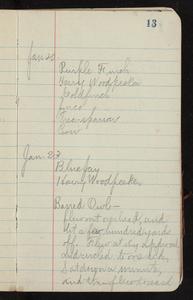 13
Jan 20
Purple Finch
Hairy Woodpecker
Goldfinch
Junco
Tree sparrow
Crow
Jan. 22
Blue Jay
Hairy Woodpecker
Barred Owl -
flew out overhead, and
lit a few hundred yards
off. Flew at my approach
and
Sat down a minute,
and then flew